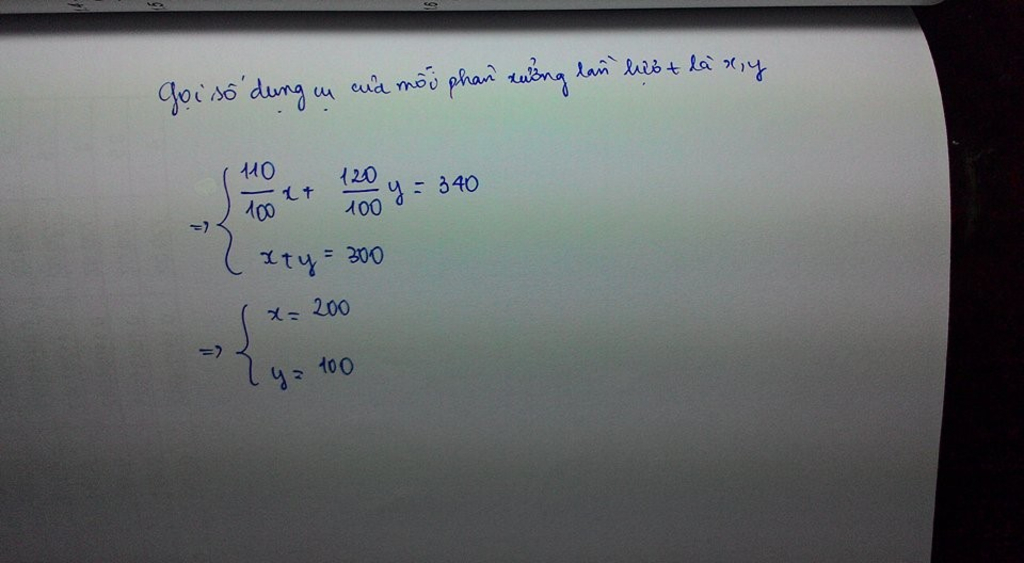 Gọi số dụng cụ của mỗi phân xưởng lần lượt là x, y
=> { 110/100 x + 120/100 y = 340
x + y = 300
=> { x = 200
y = 100